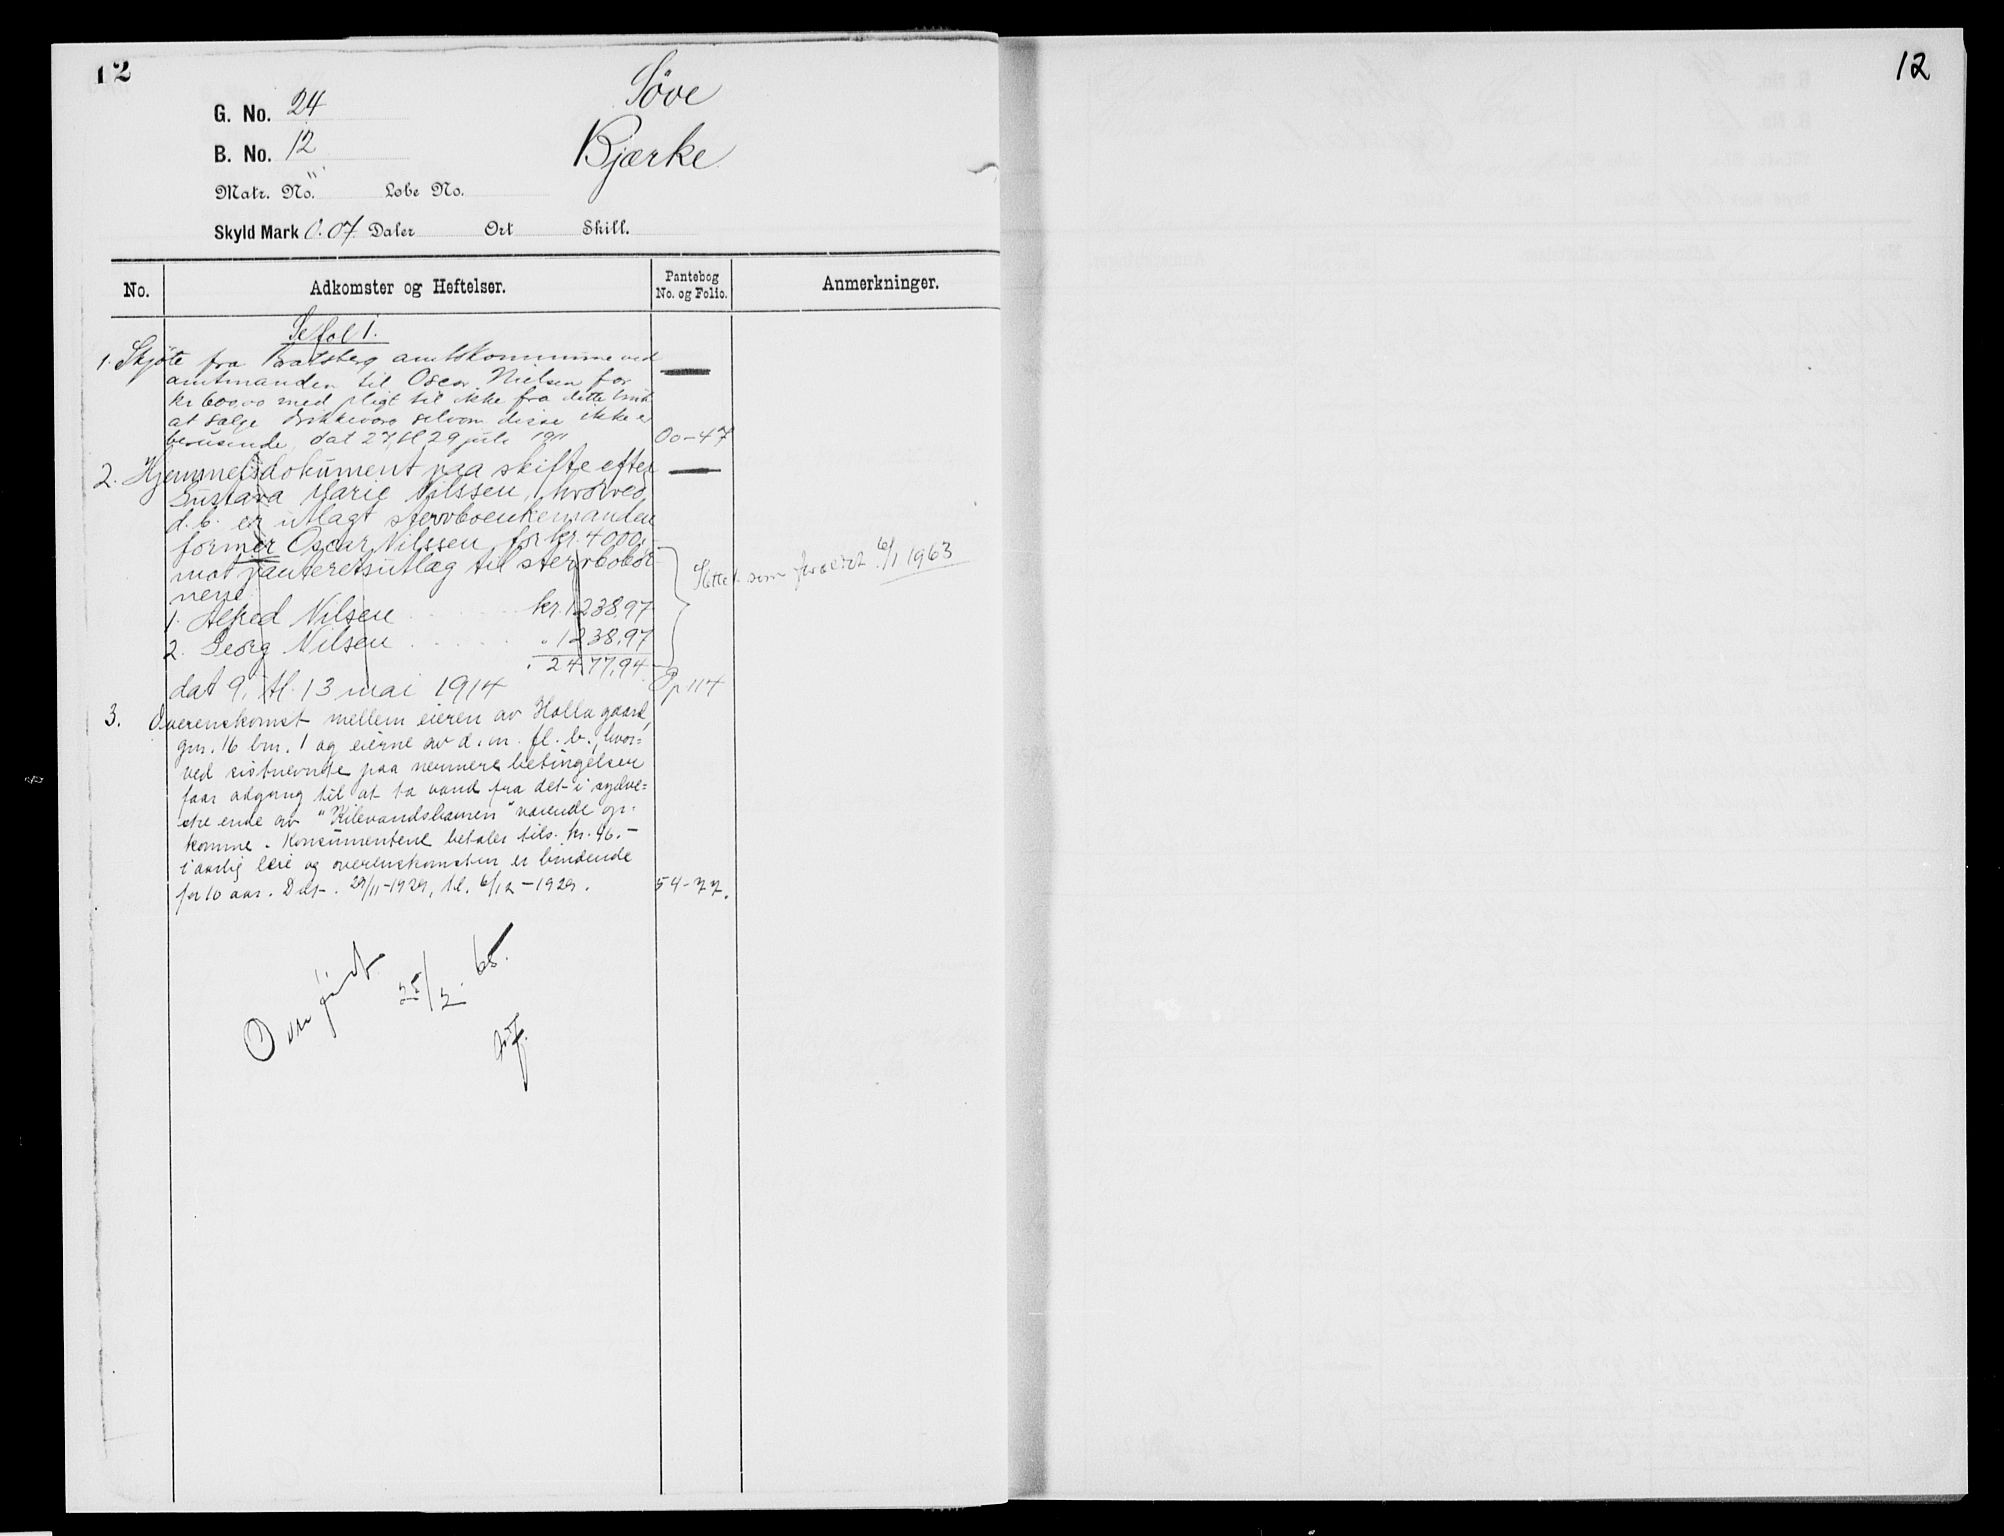 12
12
Søve
G. No. 24
B. No. 12
Bjærke
Matr. No. " Løbe No.
Skyld Mark 0.07 Daler Ort Skill.
No. Adkomster og Heftelser. Pantebog No. og Folio. Anmerkninger.
Se fol 1.
1. Skjøte fra Bratsberg amtskommune ved
amtmanden til Oscar Nielsen for
kr 600,00 med pligt til ikke fra dette bruk
at sælge drikkevarer selvom disse ikke er
berusende, dat 27, tl 29 juli 1911 Oo-47
2. Hjemmelsdokument paa skifte efter
Gustava Marie Nilssen, hvorved
d. b. er utlagt stervboenkemanden
former Oscar Nilssen for kr. 4000,-
mot panteretsutlæg til stervbobør-
nene
1. Alfred Nilsen kr. 1238,97
2. Georg Nilsen " 1238,97
" 2477,94
Slettet som foreldet 6/1 1963
dat 9, tl. 13 mai 1914 Pp 114
3. Overenskomst mellem eieren av Holla gaard,
gnr. 16 bnr. 1 og eierne av d. m. fl. b., hvor=
ved sistnevnte paa nermere betingelser
faar adgang til at ta vand fra det i sydve=
stre ende av "Kilevandshamren" værende op=
komme. Konsumentene betaler tils. kr. 46.-
i aarlig leie og overenskomsten er bindende
for 10 aar. Dat. 29/11-1929, tl. 6/12-1929. 54-77.
Overført 25/2. 65.